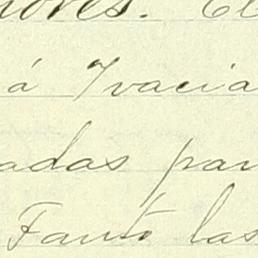 nores. El
á Gracia
adas par
Fanto las